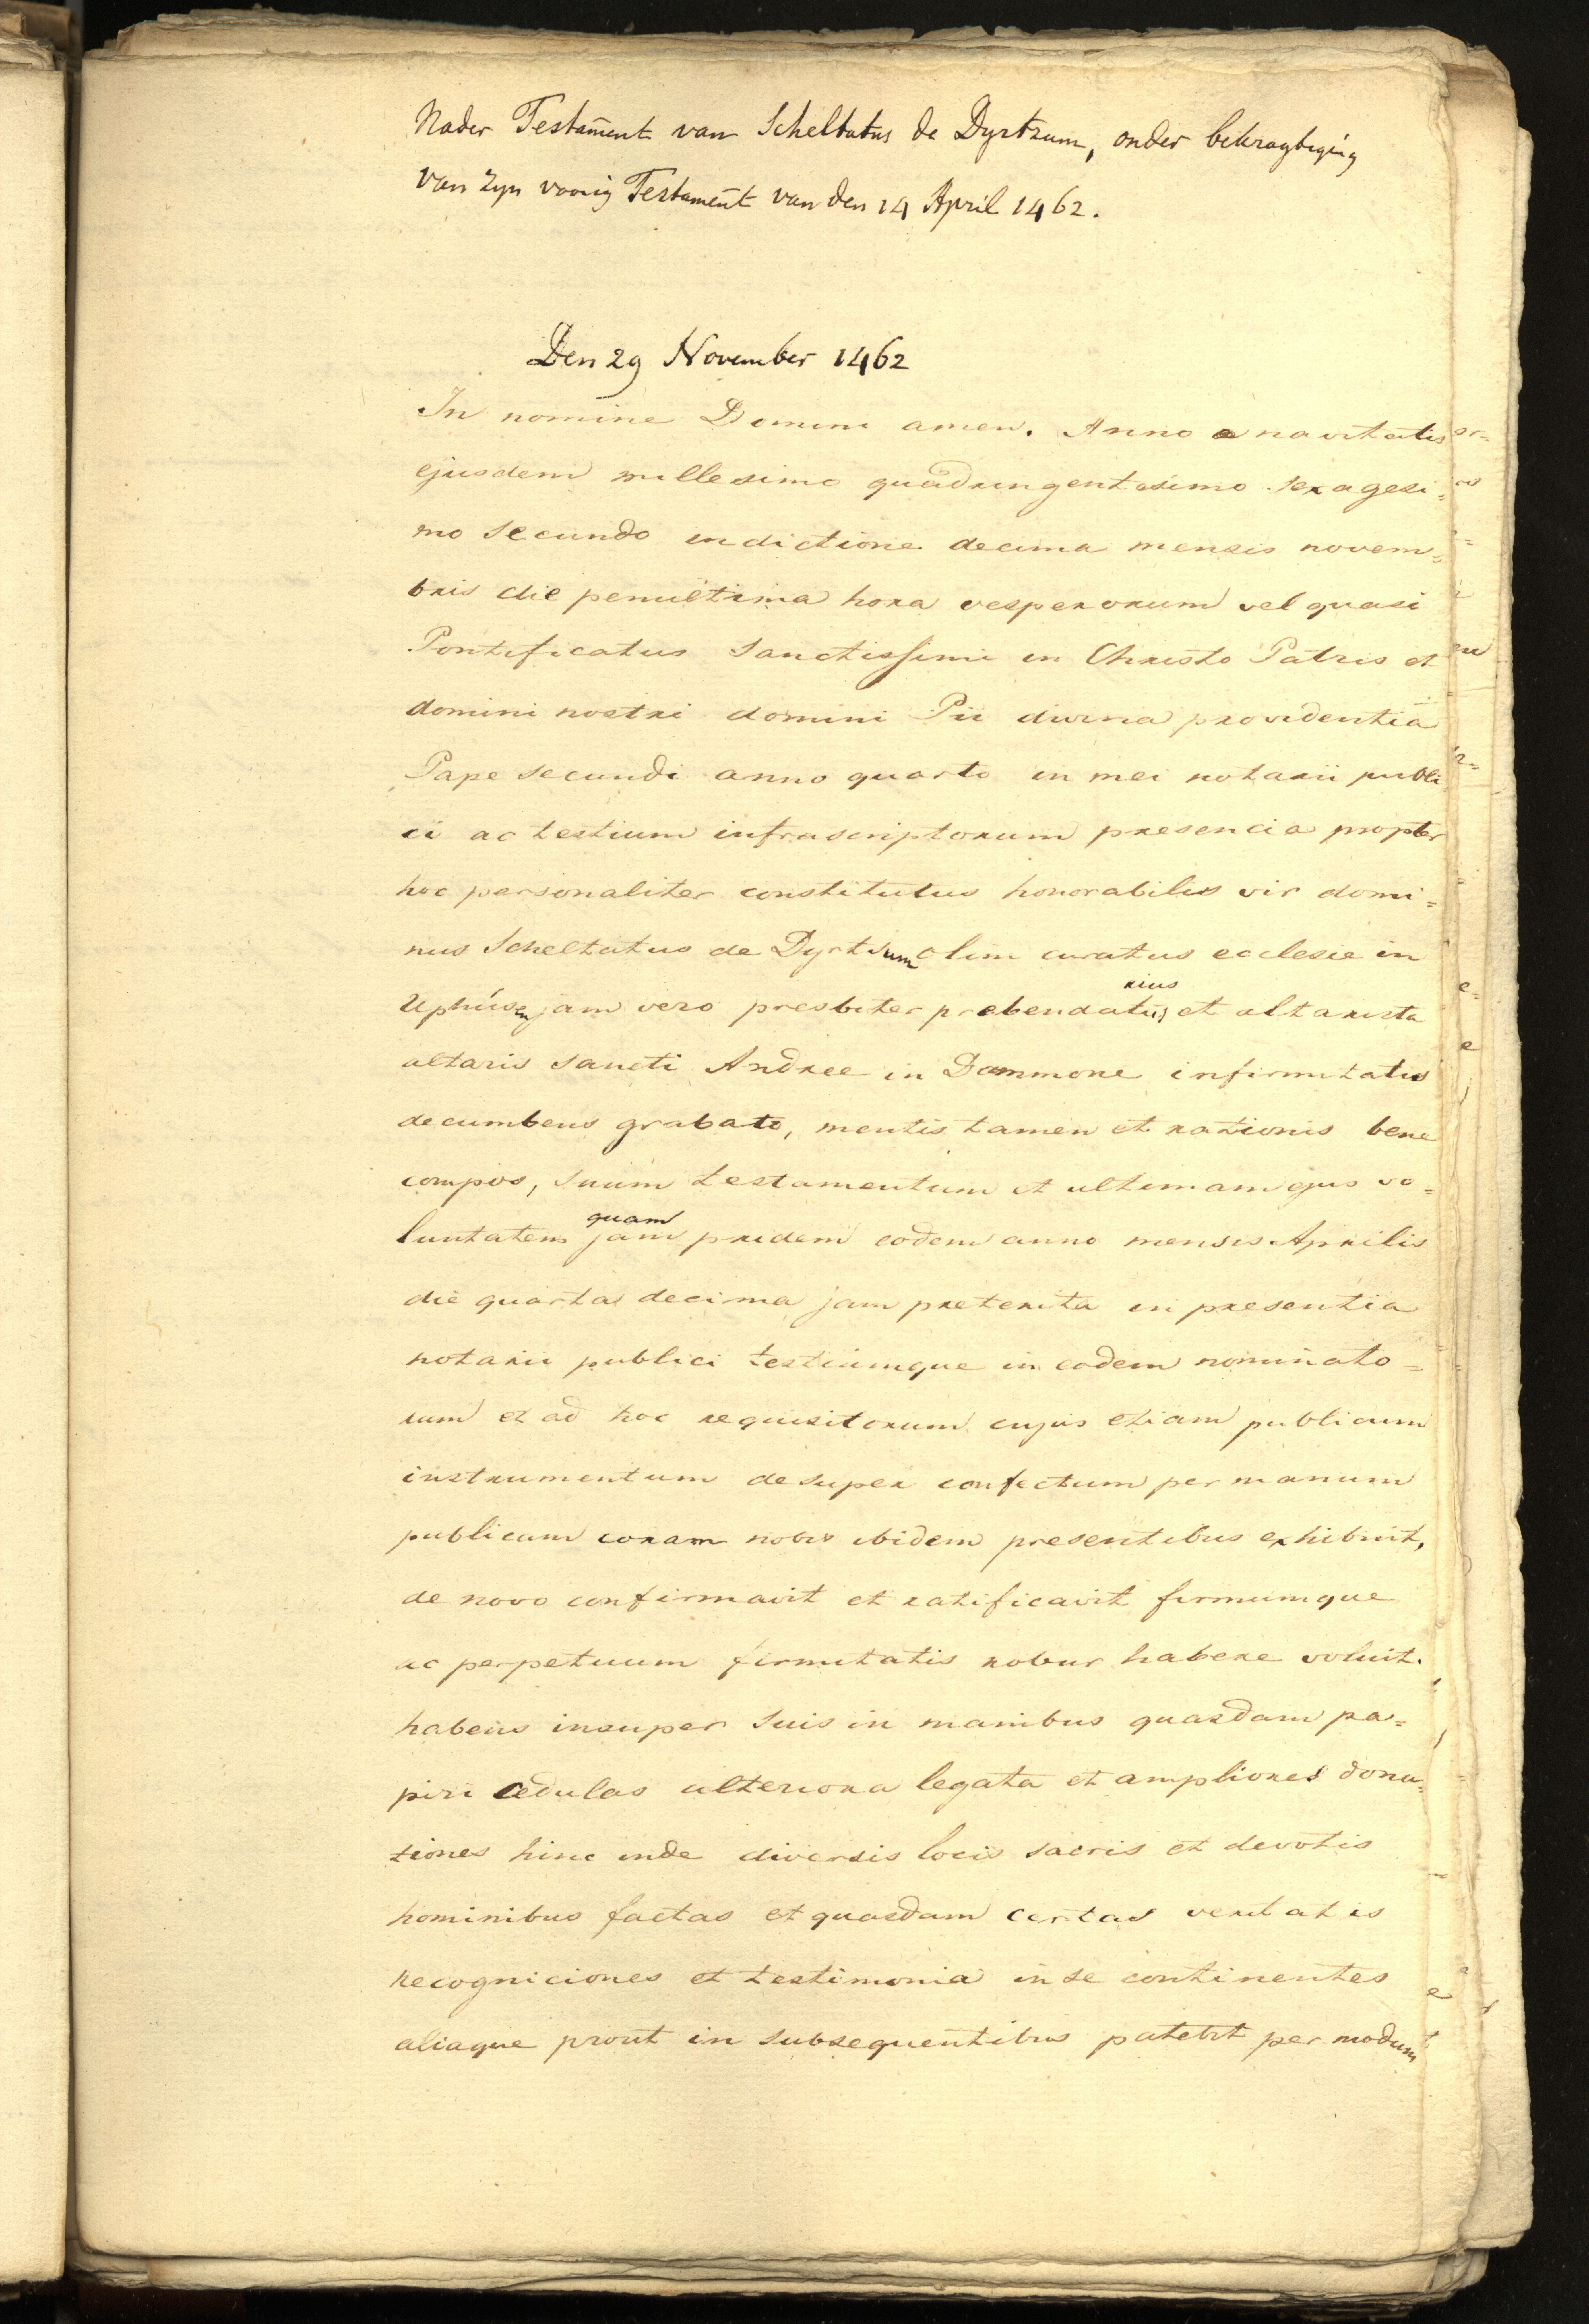 Nader Testament van Scheltatus de Dyrtzum, onder bekragtiging
van zyn voorig Testament van den 14 April 1462.
Den 29 November 1462
In nomine Domini amen. Anno a nativitatis
ejusdem millesimo quadringentesimo sexagesi=
mo secundo indictione decima mensis novem=
bris die penultima hora vesperorum vel quasi
Pontificatus sanctissimi in Christo Patris et
domini nostri domini Pii divina providentia
Pape secundi anno quarto in mei notarii publi
ci ac testium infrascriptorum presencia propter
hoc personaliter constitutus honorabilis vir domi=
nus Scheltatus de Dyrtsum olim curatus ecclesie in
rius
Uphusen jam vero presbiter prebendatus et altarista
altaris sancti Andree in Dammone infirmitatis
decumbens grabato, mentis tamen et rationis bene
compos, suum testamentum et ultimam ejus vo=
quam
luntatem jam pridem eodem anno mensis Aprilis
die quarta decima jam preterita in presentia
notarii publici testiumque in eodem nominato=
rum et ad hoc requisitorum cujus etiam publicum
instrumentum desuper confectum per manum
publicam coram nobis ibidem presentibus exhibuit,
de novo confirmavit et ratificavit firmumque
ac perpetuum firmitatis robur habere voluit.
habens insuper suis in manibus quasdam pa=
piri cedulas ulteriora legata et ampliores dona=
tiones hinc inde diversis locis sacris et devotis
hominibus factas et quasdam certas veritatis
recogniciones et testimonia in se continentes
aliaque prout in subsequentibus patebit per modum